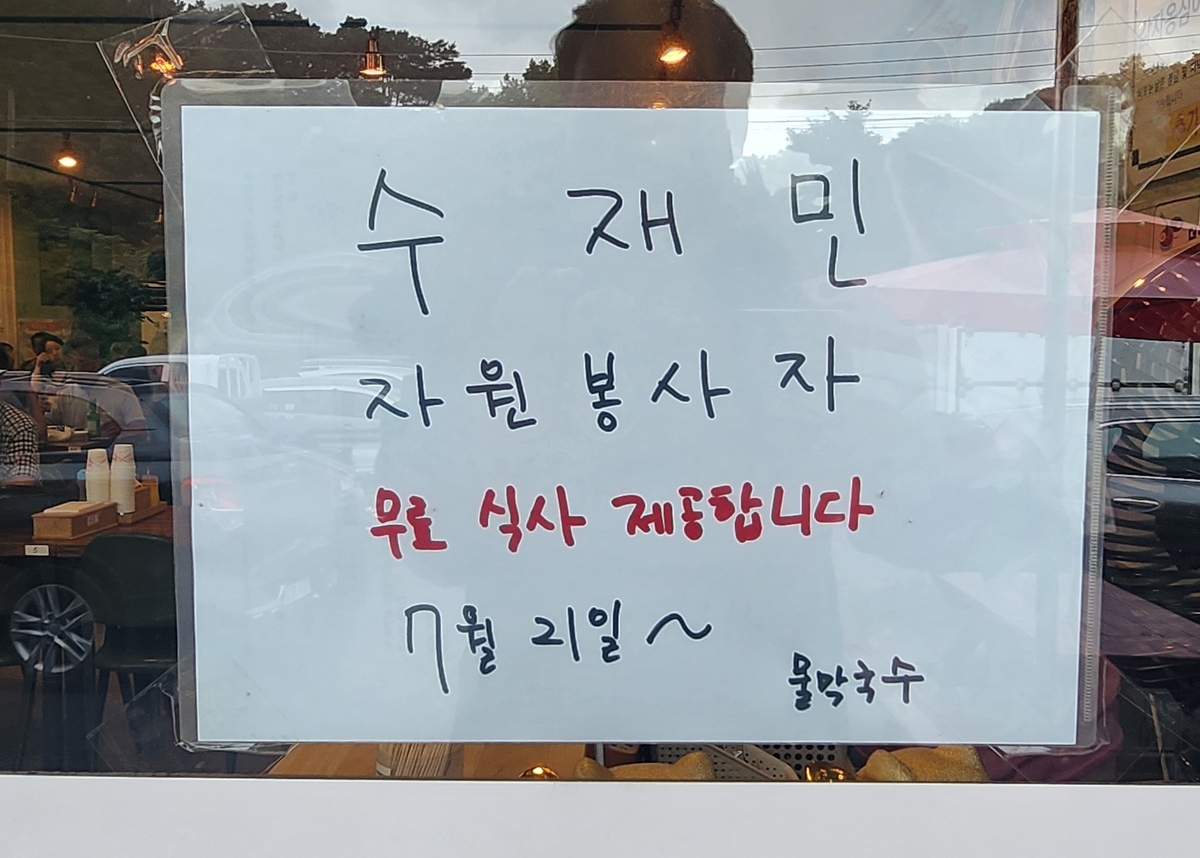 수 재 민
자 원 봉 사 자
무료 식사 제공합니다
7월 21일~
물막국수